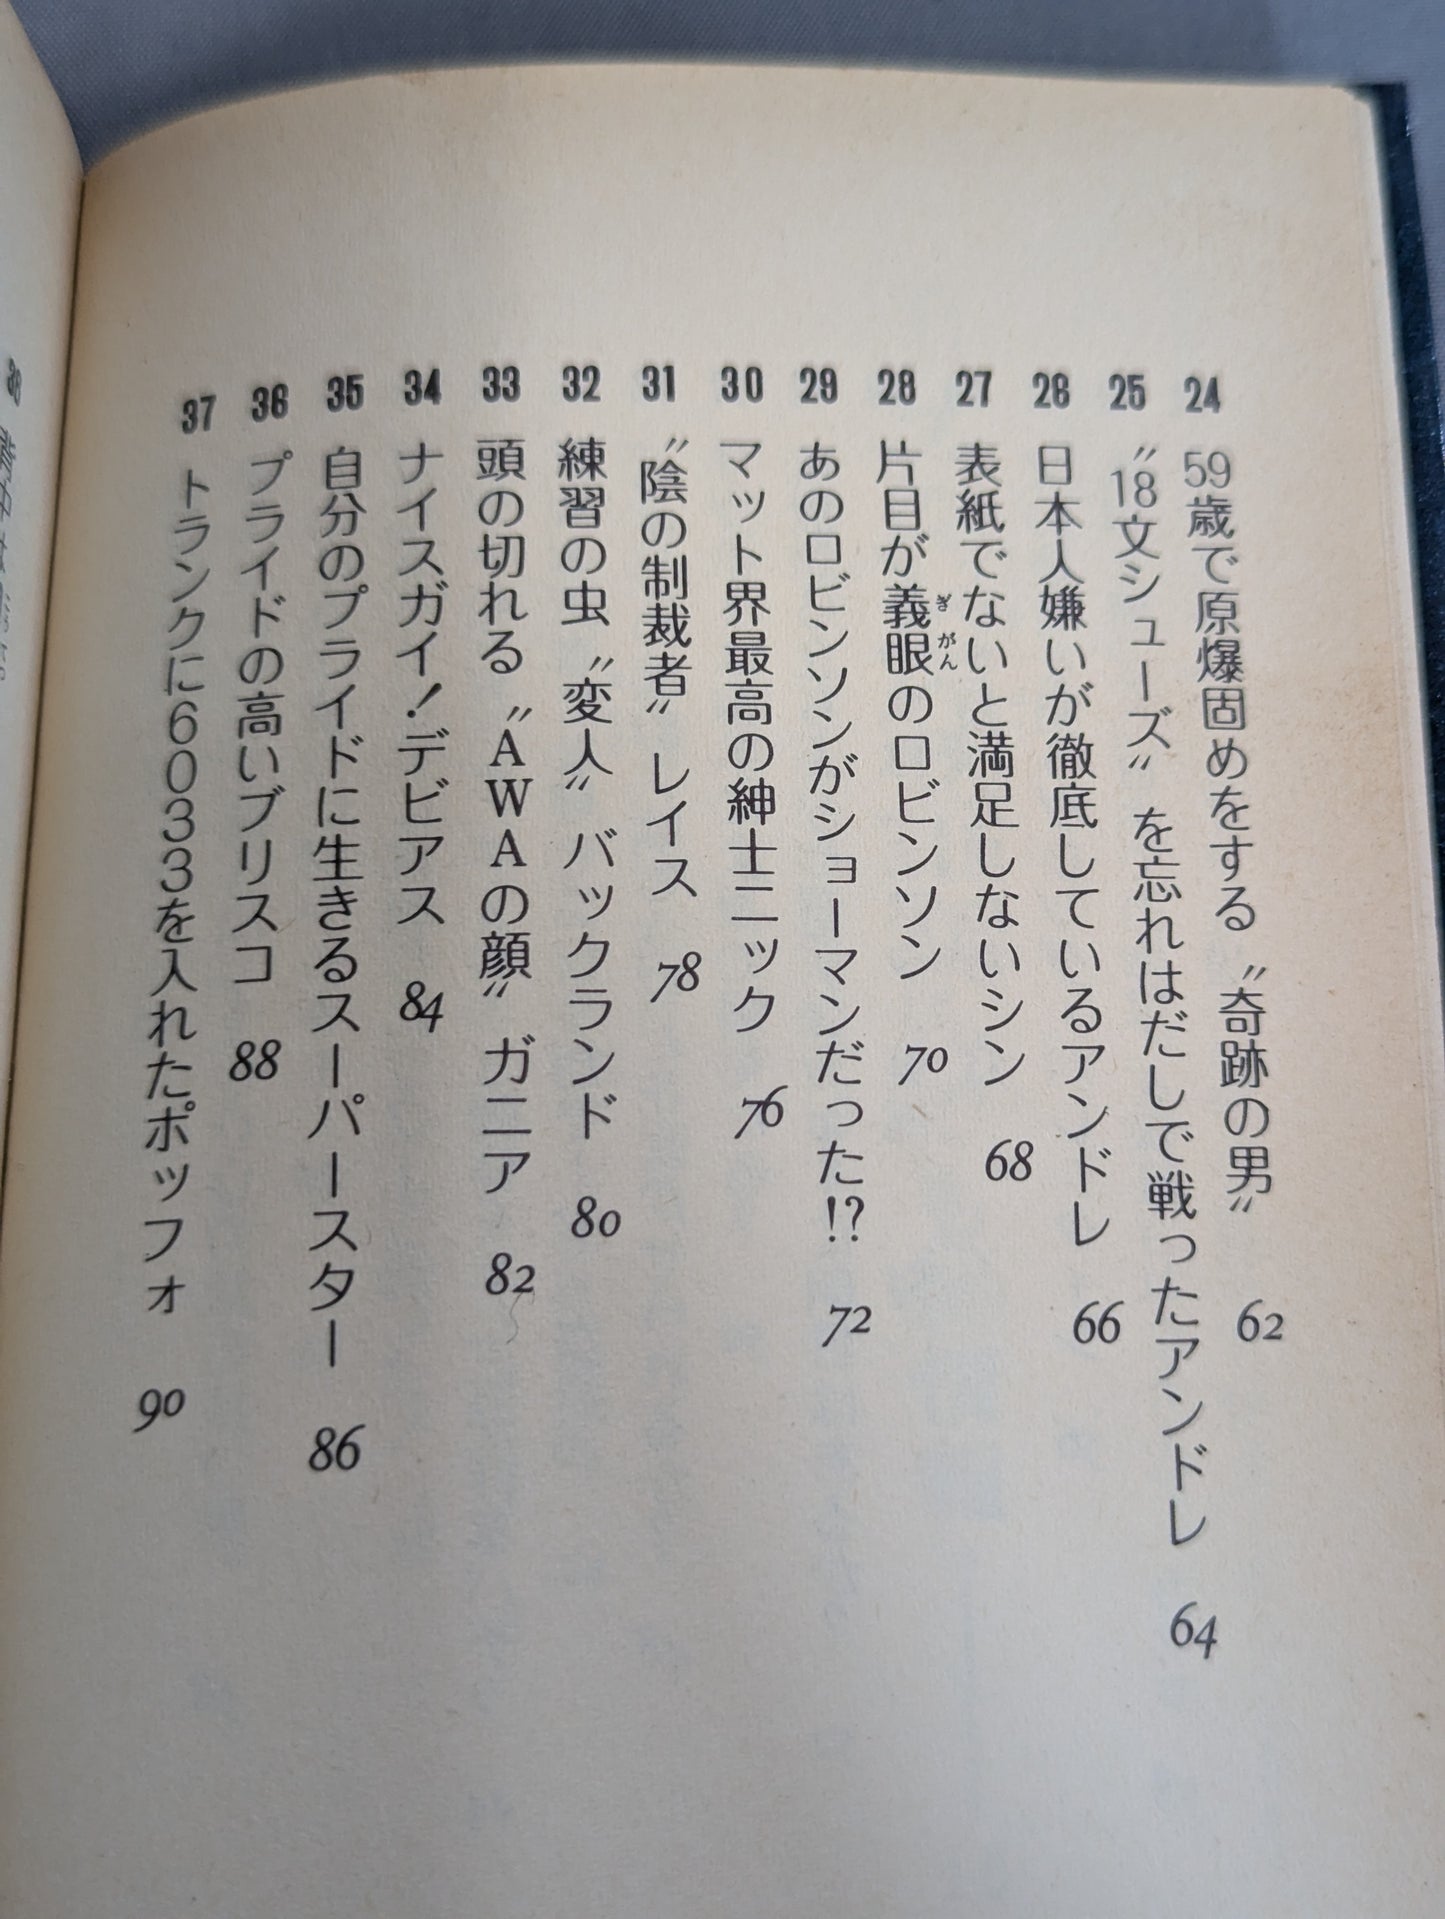 24 59歳で原爆固めをする〝奇跡の男〟 62
25 〝18文シューズ〟を忘れはだしで戦ったアンドレ 64
26 日本人嫌いが徹底しているアンドレ 66
27 表紙でないと満足しないシン 68
28 片目が義眼のロビンソン 70
ぎがん
29 あのロビンソンがショーマンだった!? 72
30 マット界最高の紳士ニック 76
31 〝陰の制裁者〟レイス 78
32 練習の虫〝変人〟バックランド 80
33 頭の切れる〝AWAの顔〟ガニア 82
34 ナイスガイ!デビアス 84
35 自分のプライドに生きるスーパースター 86
36 プライドの高いブリスコ 88
37 トランクに6033を入れたポッフォ 90